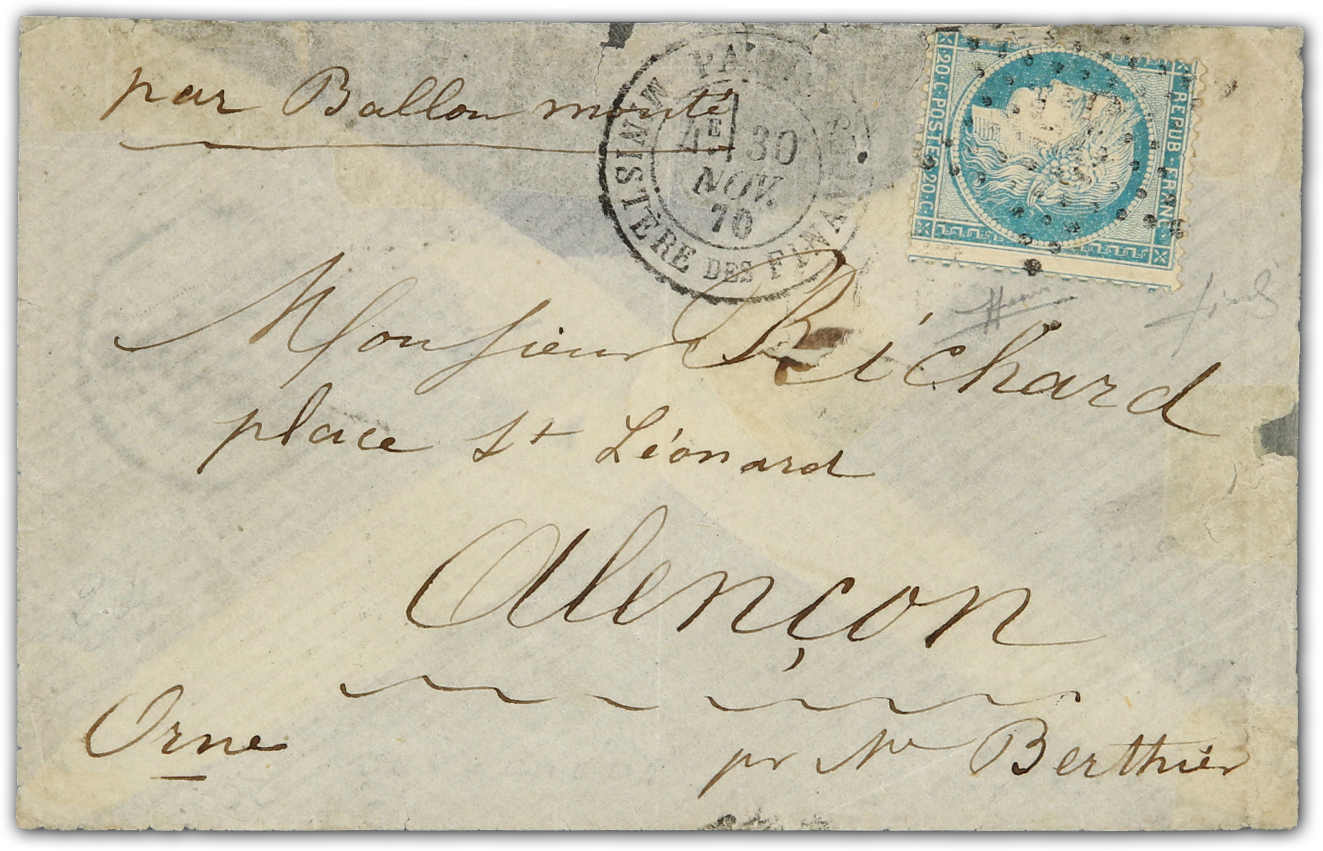 par Ballon monté
PARIS
4E 30
NOV.
70
SIN-ST
IÈRE DES FINANCES
REPUB. FRANC.
20.C.POSTE.20.C.
Monsieur Richard
place St Léonard
Alençon
Orne
pr Berthier